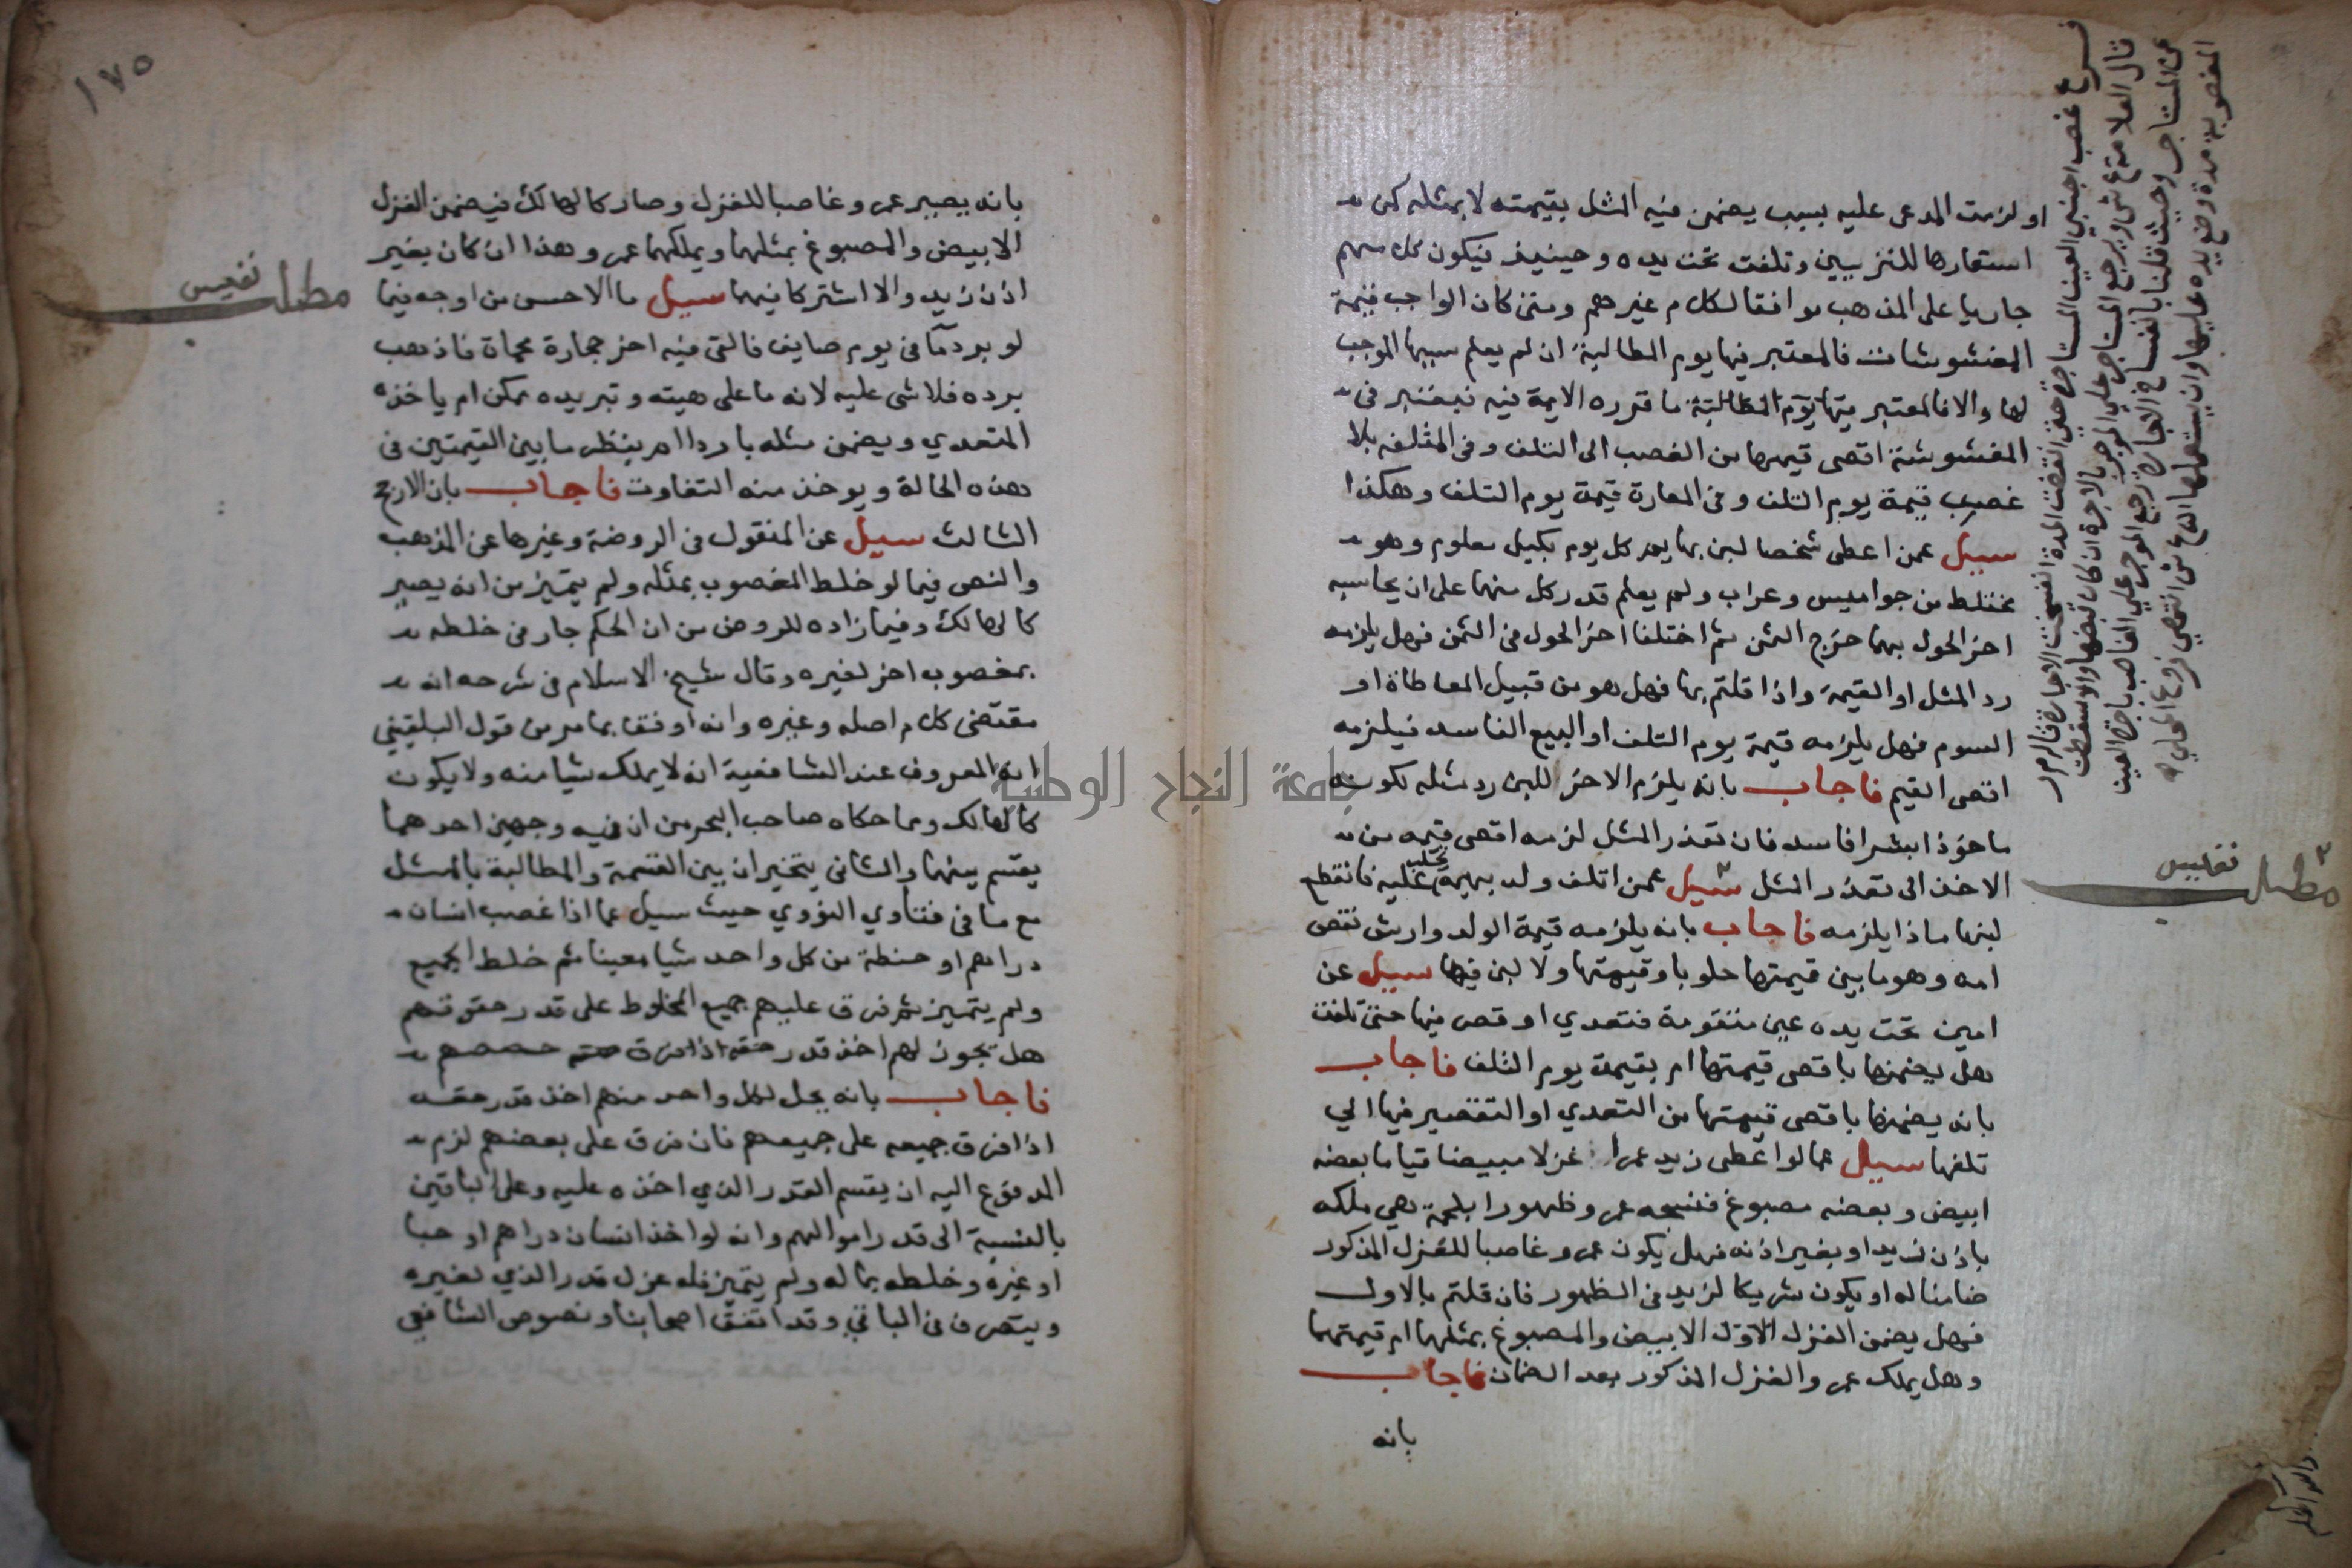 او لزمت المدعى عليه بسبب يضمن فيه المثل بقيمته لا بمثله كمن
استعارها للتزيين وتلفت تحت يده وحينيذ فيكون كل منهم
جاريا على المذهب موافقا لكلام غيرهم ومتى كان الواجب قيمة
المغشوشات فالمعتبر فيها يوم المطالبة ان لم يعلم سببها الموجب
لها والا فالمعتبر فيها يوم المطالبة ما قرره الايمة فيه فيعتبر في
المغشوشة اقصى قيمها من الغصب الى التلف وفي المتلفه بلا
غصب قيمة يوم التلف وفي المعارة قيمة يوم التلف وهكذا
سيل عمن اعطى شخصا لبن بهايم كل يوم بكيل معلوم وهو
مختلط من جواميس وعراب ولم يعلم قدر كل منهما على ان يحاسبه
اخر الحول بهما خرج الثمن ثم اختلفا اخر الحول في الثمن فهل يلزمه
رد المثل او القيمة واذا قلتم بها فهل هو من قبيل المعاطاة او
السوم فهل يلزمه قيمة يوم التلف او البيع الفاسد فيلزمه
اقصى القيم فاجاب بانه يلزم الاخذ للبن رد مثله لكونه
ماخوذا بشرا فاسد فان تعذر المثل لزمه اقصى قيمه من
الاخذ الى تعذر المثل سيل عمن اتلف ولد بهيمة تحلب عليه فانقطع
لبنها ماذا يلزمه فاجاب بانه يلزمه قيمة الولد وارش نقص
امه وهو ما بين قيمتها حلوبا وقيمتها ولا لبن فيها سيل عن
امين تحت يده عين متقومة فتعدي او قصر فيها حتى تلفت
هل يضمنها باقصى قيمتها ام بقيمة يوم التلف فاجاب
بانه يضمنها باقصى قيمتها من التعدي او التقصير فيها الي
تلفها سيل عما لو اعطى زيد عمرا غزلا مبيضا قياما بعضه
ابيض وبعضه مصبوغ فنسجه عمرو ظهورا بلحمة هي ملكه
باذن زيد او بغير اذنه فهل يكون عمرو غاصبا للغزل المذكور
ضامنا له او يكون شريكا لزيد في الظهور فان قلتم بالاول
فهل يضمن الغزل الاول الابيض والمصبوغ بمثلهما ام قيمتهما
وهل يملك عمرو الغزل المذكور بعد الضمان فاجاب
بانه
فرع غصب اجنبي العين المستاجرة حتى انقضت المدة انفسخت الاجارة قاله م ر
قال العلامة ع ش ويرجع المستاجر علي الموجر بالاجرة ان كان قبضها والا سقطت
عن المستاجر وحيث قلنا بانفساخ الاجارة رجع الموجر علي الغاصب باجرة العين
المغصوبة مدة وضع يده عليها وان لم يستعملها اه ع ش انتهي
مطلب نفيس
والله اعلم
١٧٥
بانه يصير عمرو غاصبا للغزل وصار كالهالك فيضمن الغزل
الابيض والمصبوغ بمثلهما ويملكهما عمرو هذا ان كان بغير
اذن زيد والا اشتركا فيهما سيل ما الاحسن من اوجه فيما
لو برد ما في يوم صايف فالقى فيه اخر حجارة محماة فاذهب
برده فلا شى عليه لانه ما على هيته وتبريده ممكن ام ياخذه
المتعدي ويضمن مثله باردا ام ينظر ما بين القيمتين في
هذه الحالة ويوخذ منه التفاوت فاجاب بان الارجح
الثالث سيل عن المنقول في الروضة وغيرها عن المذهب
والنص فيما لو خلط المغصوب بمثله ولم يتميز من انه يصير
كالهالك وفيما زاده للروض من ان الحكم جار في خلطه
بمغصوب اخر لغيره وقال شيخ الاسلام في شرحه انه
مقتضى كلام اصله وغيره وانه اوفق بما مر من قول البلقيني
انه المعروف عند الشافعية انه لا يملك شيا منه ولا يكون
كالهالك ومما حكاه صاحب البحر من ان فيه وجهين احدهما
يقسم بينهما والثاني يتخيران بين القسمة والمطالبة بالمثل
مع ما في فتاوي النووي حيث سيل عما اذا غصب انسان
دراهم او حنطة من كل واحد شيا معينا ثم خلط الجميع
ولم يتميز ثم فرق عليهم جميع المخلوط على قدر حقوقهم
هل يجوز لهم اخذ قدر حقه اذا فرق حصصهم
فاجاب بانه يحل لكل واحد منهم اخذ قدر حقه
اذا فرق جميعه على جميعهم فان فرق على بعضهم لزم
المدفوع اليه ان يقسم القدر الذي اخذه عليه وعلى الباقين
بالنسبة الى قدر اموالهم وانه لو اخذ انسان دراهم او حبا
او غيره وخلطه بماله ولم يتميز فله عزل قدر الذي لغيره
ويتصرف في الباقي وقد اتفق اصحابنا ونصوص الشافعي
مطلب نفيس
جامعة النجاح الوطنية